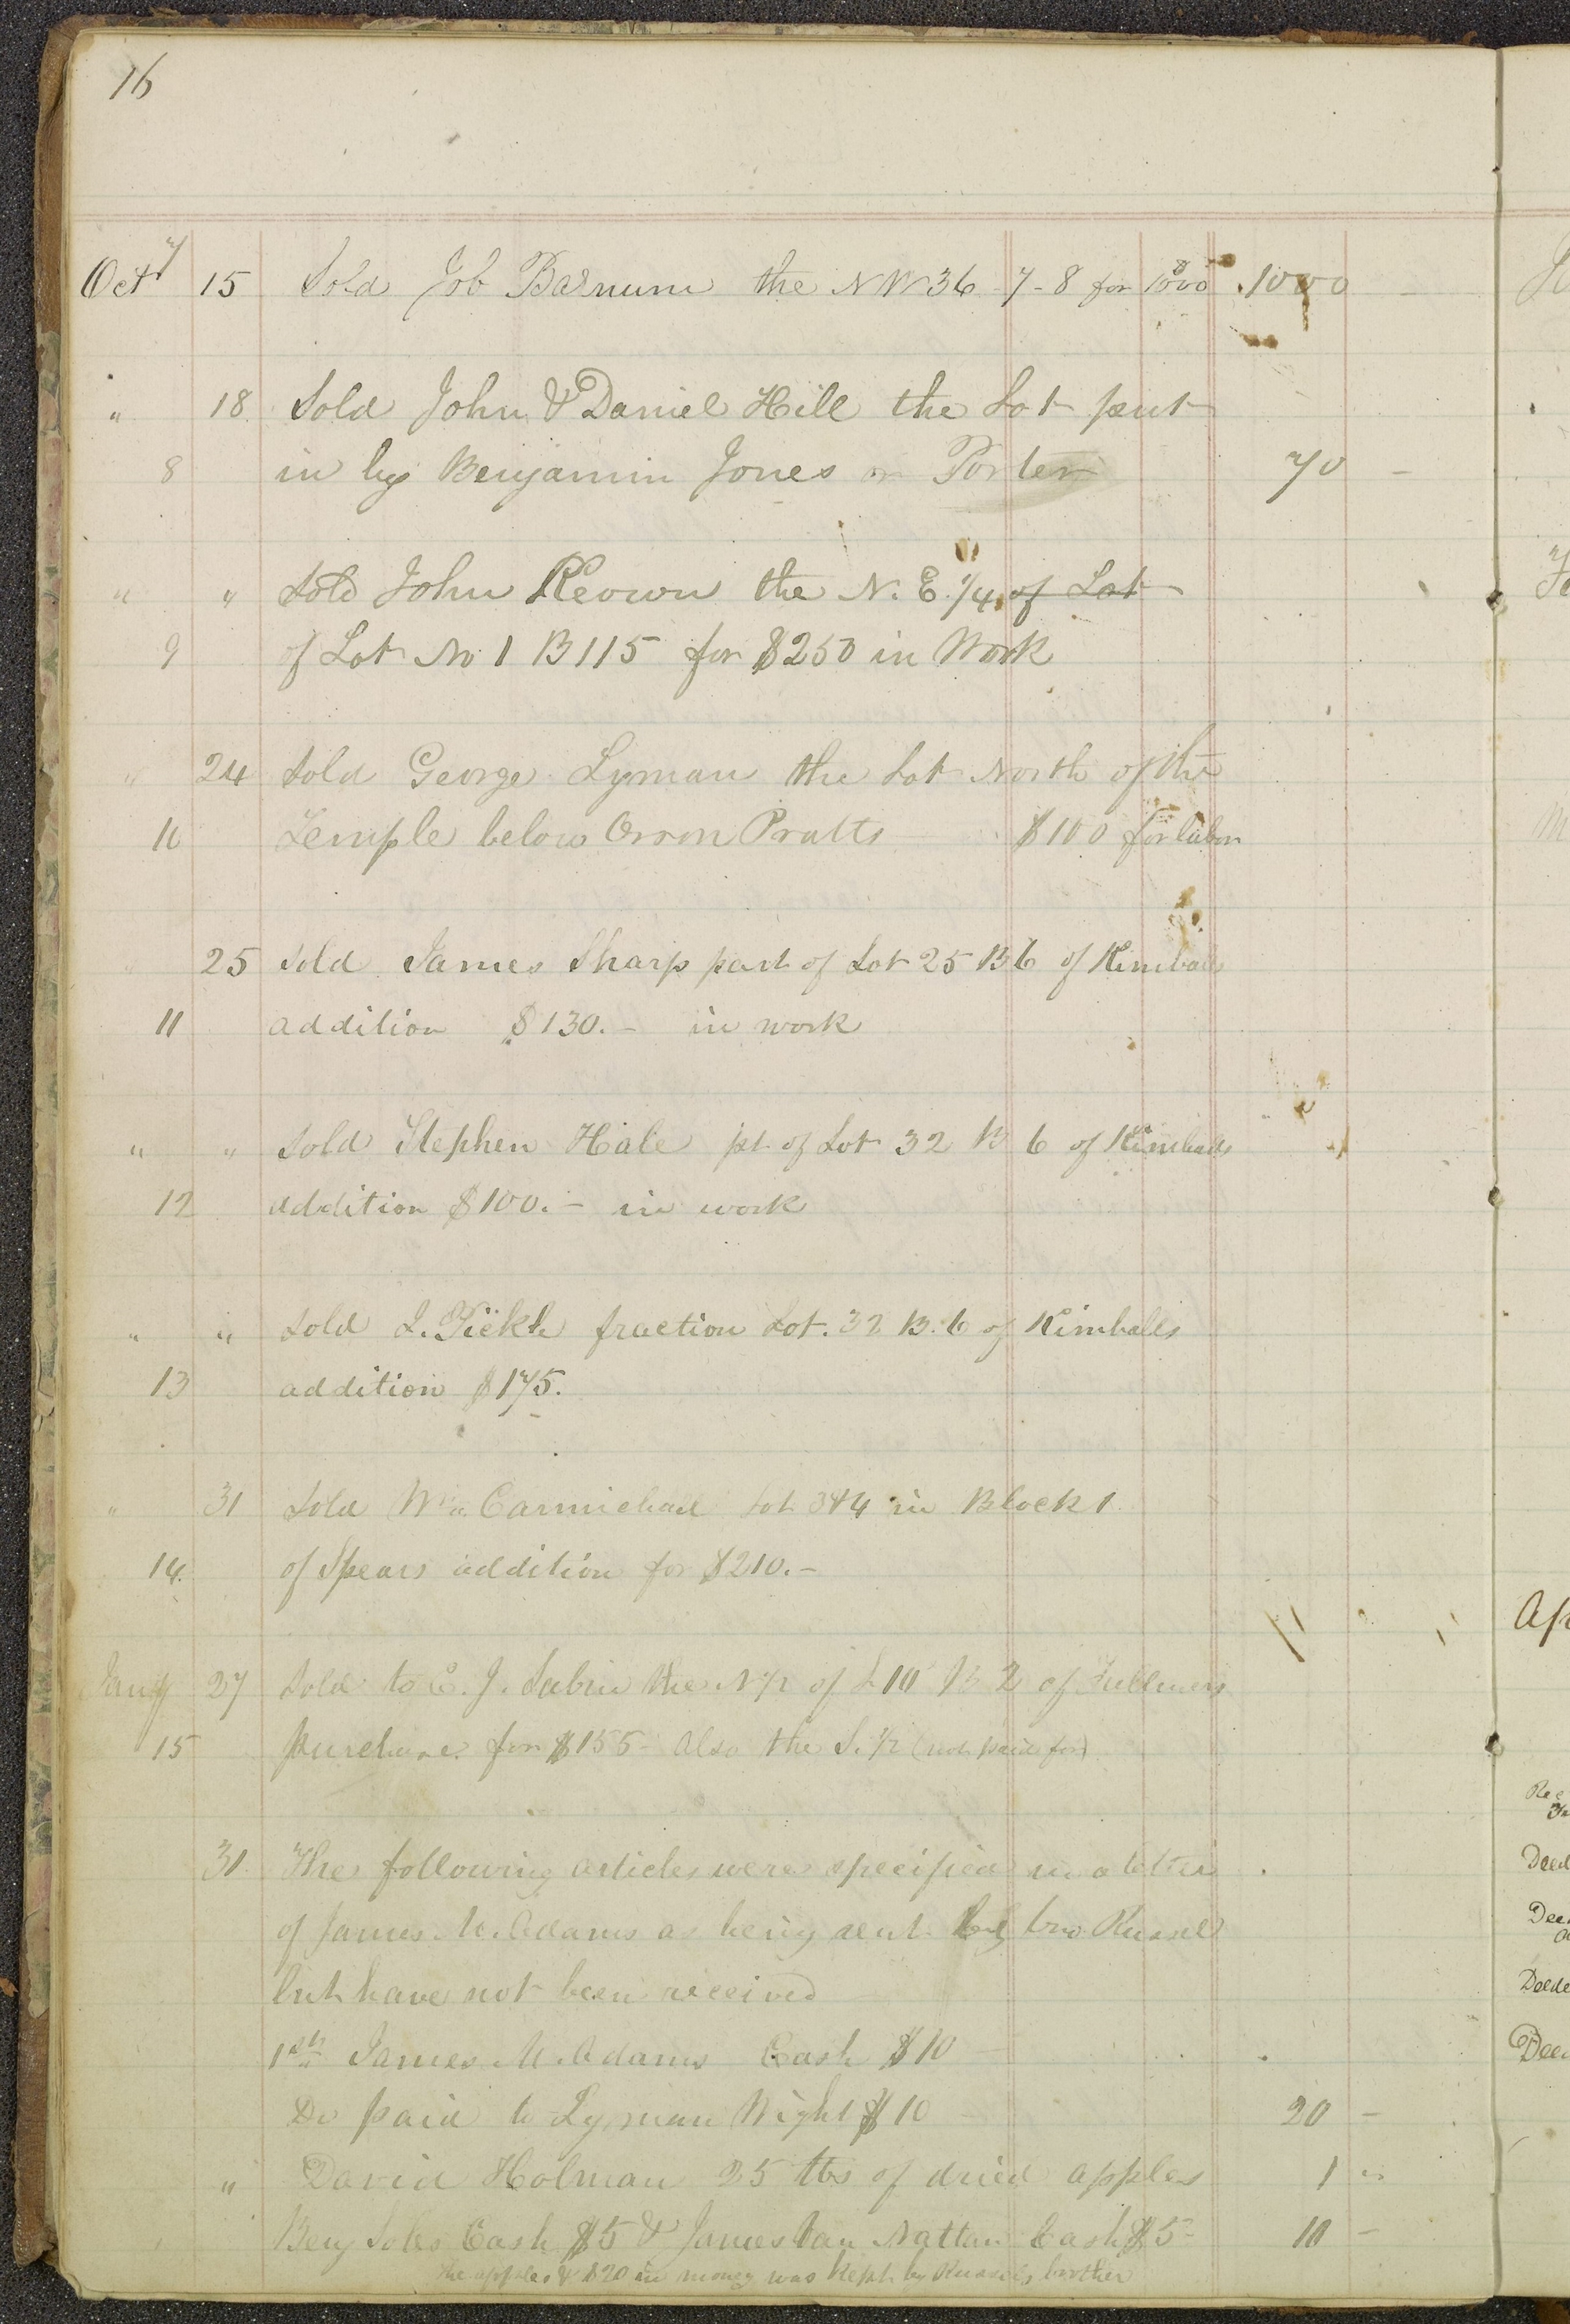 16
Oct 7 15 Sold Job Barnum the NW 36 7-8 for 1000 1000 -
" 18 Sold John & Daniel Hill the Lot put
8 in by Benjamin Jones or Porter 70 -
" " Sold John Keown the N. E. 1/4 of Lot
9 of Lot No 1 B 115 for $250 in Work
" 24 Sold George Lyman the Lot North of the
10 Temple below Orson Pratts $100 for labor
" 25 Sold James Sharp part of Lot 25 B 6 of Kimballs
11 addition $130.- in work
" " Sold Stephen Hale pt of Lot 32 B 6 of Kimballs
12 addition $100.- in work
" " Sold I. fraction Lot. 32 B. 6 of Kimballs
13 addition $175.
" 31 Sold Wm Carmichael Lot 3&4 in Block 1
14. of Spears addition for $210.-
Jany 27 Sold to E. J. Sabin the N 1/2 of L 10 B 2 of Fullmers
15 purchase for $155- Also the S. 1/2 (not paid for)
31. The following articles were specified in a letter
of James M. Adams as being sent by bro Russel
but have not been received
1st James M. Adams Cash $10 -
Do paid to Lyman Wight $10 - 20 -
" David Holman 25 lbs of dried apples 1 "
Benj Soles Cash $5 & James Van Nattan Cash $5- 10 -
The apples & $20 in money was kept by Russels brother
Ap
Deed
Deed